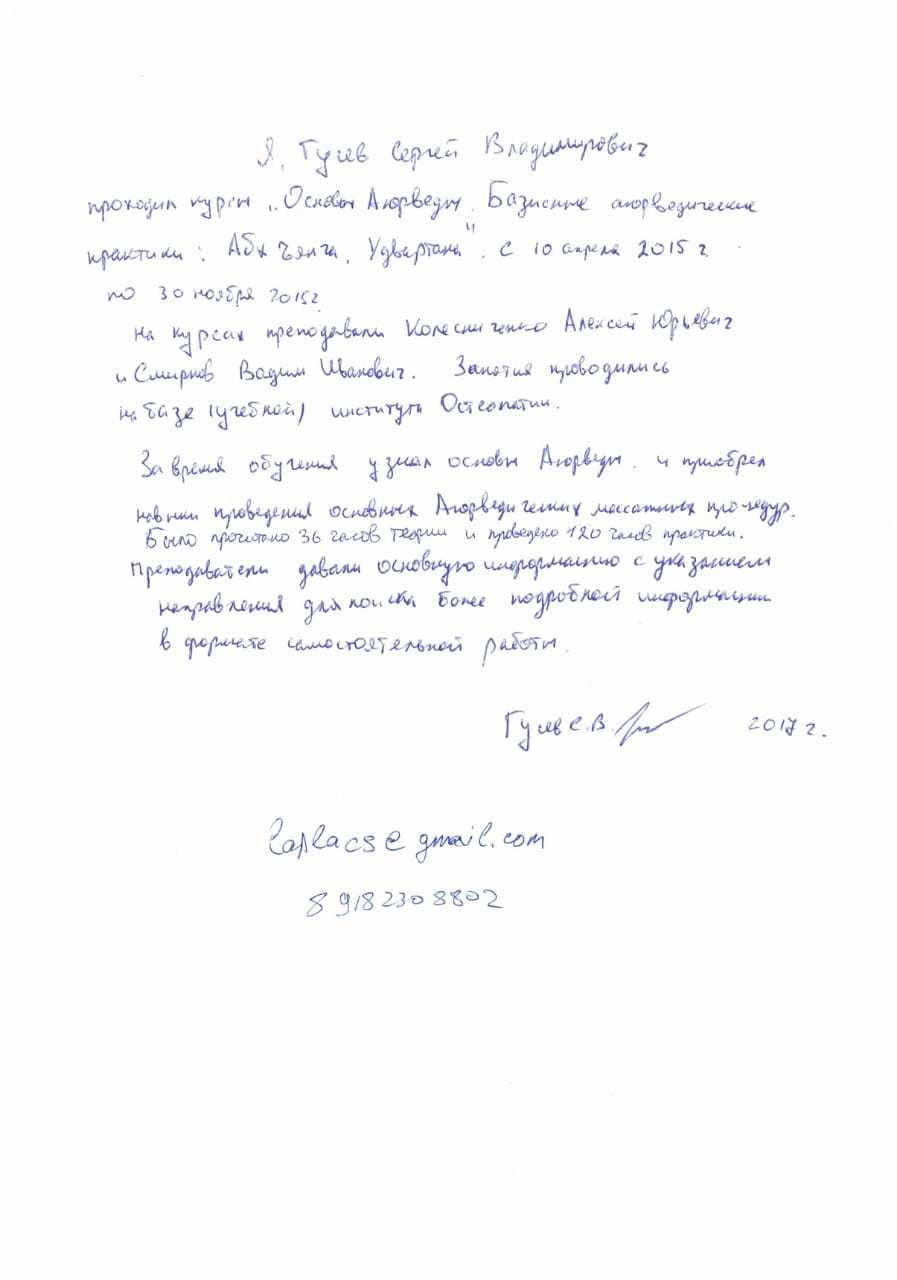 Я, Гусев Сергей Владимирович
проходил курсы „Основы Аюрведы. Базисные аюрведические
практики: Абхъянга, Удвартана", с 10 апреля 2015 г
по 30 ноября 2015г.
на курсах преподавали Колесниченко Алексей Юрьевич
и Смирнов Вадим Иванович. Занятия проводились
на базе (учебной) института Остеопатии.
За время обучения узнал основы Аюрведы. и приобрел
навыки проведения основных Аюрведических массажных процедур.
Было прочитано 36 часов теории и проведено 120 часов практики.
Преподаватели давали основную информацию с указанием
направления для поиска более подробной информации
в формате самостоятельной работы.
Гусев С.В. 2017 г.
laplacs@gmail.com
8 9182308802